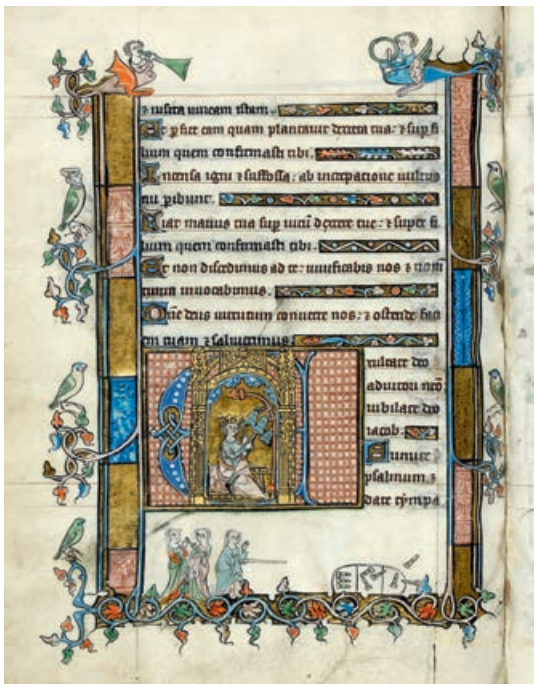 ⁊ uisita uineam istam.
Et ꝑfice eam quam plantauit dextera tua: ⁊ suꝑ fi
lium quem confirmasti tibi.
Incensa igni ⁊ suffossa: ab increpatione uultus
tui ꝑibunt.
Fiat manus tua suꝑ uirū dextere tue: ⁊ super fi
lium quem confirmasti tibi.
Et non discedimus a te: uiuificabis nos ⁊ nom
tuum inuocabimus.
Dñe deus uirtutum conuerte nos: ⁊ ostende faci
em tuam ⁊ salui erimus.
Exultate deo
adiutori nr̄o
iubilate deo
iacob.
Sumite
psalmum ⁊
date tympa